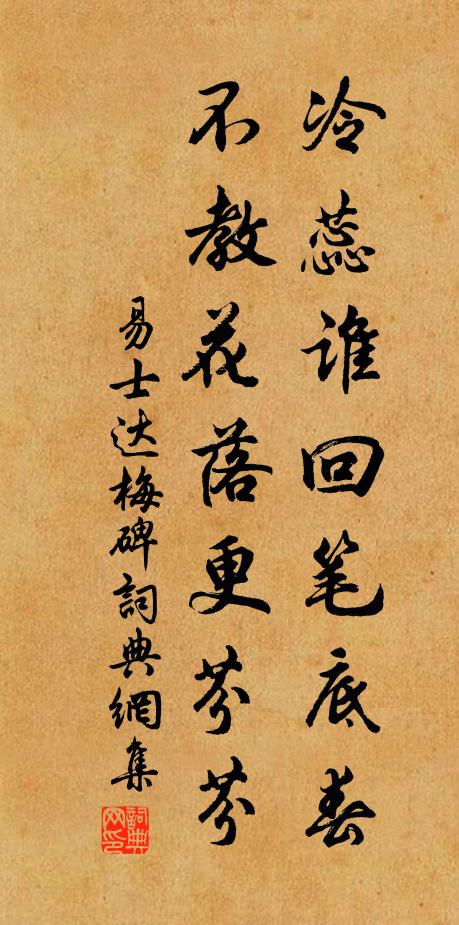 冷蕊谁回笔底春
不教花落更芬芬
易士达梅碑詞典網集
詞典网印